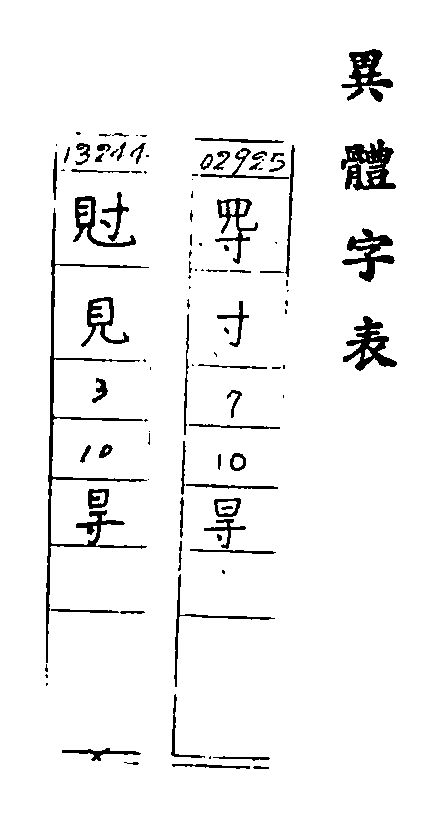 異體字表
02925
寸
7
10
㝵
䙷
見
3
10
㝵